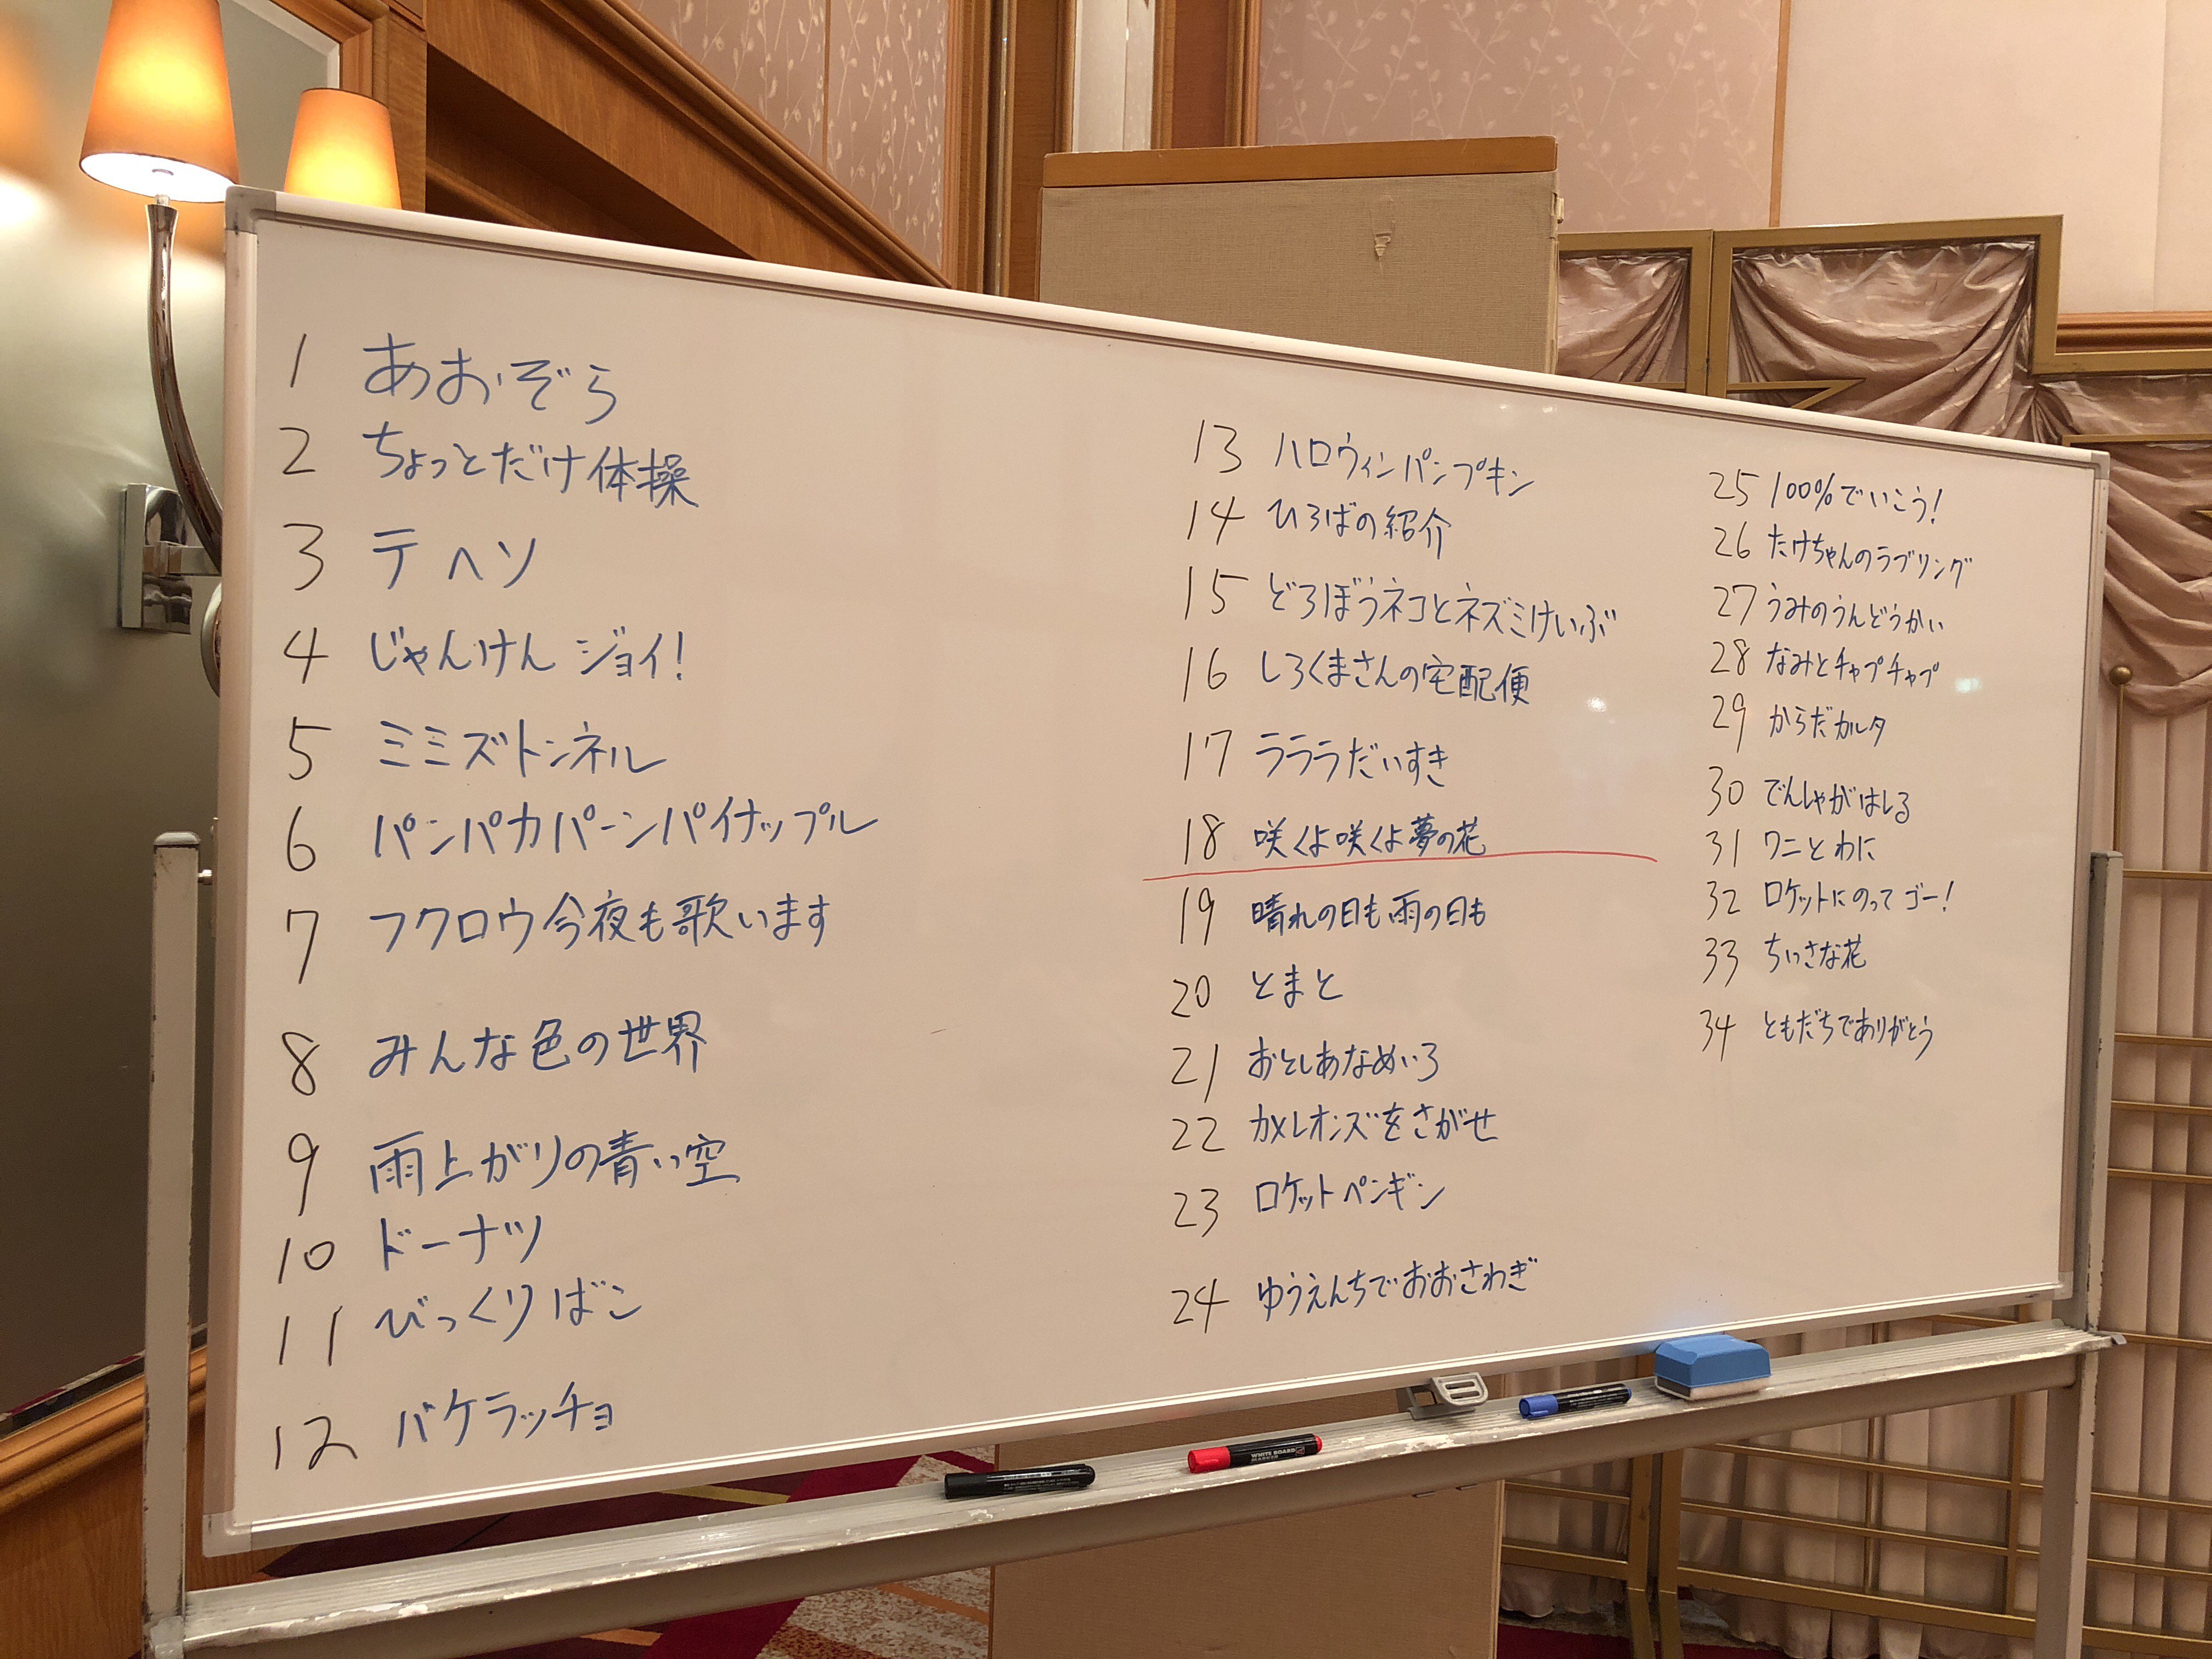 1 あおぞら
2 ちょっとだけ体操
3 テヘソ
4 じゃんけんジョイ!
5 ミミズトンネル
6 パンパカパーンパイナップル
7 フクロウ今夜も歌います
8 みんな色の世界
9 雨上がりの青い空
10 ドーナツ
11 びっくりばこ
12 バケラッチョ
13 ハロウィンパンプキン
14 ひろばの紹介
15 どろぼうネコとネズミけいぶ
16 しろくまさんの宅配便
17 ラララだいすき
18 咲くよ咲くよ夢の花
19 晴れの日も雨の日も
20 とまと
21 おとしあなめいろ
22 カメレオンズをさがせ
23 ロケットペンギン
24 ゆうえんちでおおさわぎ
25 100%でいこう!
26 たけちゃんのラブリング
27 うみのうんどうかい
28 なみとチャプチャプ
29 からだカルタ
30 でんしゃがはしる
31 ワニとわに
32 ロケットにのってゴー!
33 ちいさな花
34 ともだちでありがとう
WHITE BOARD MARKER